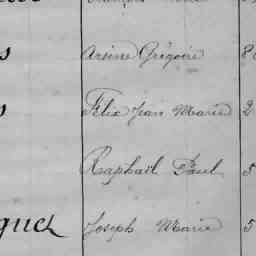 s Arsène Grégoire 8
s Félix Jean Marie 2
Raphaël Paul 5
quet Joseph Marie 5